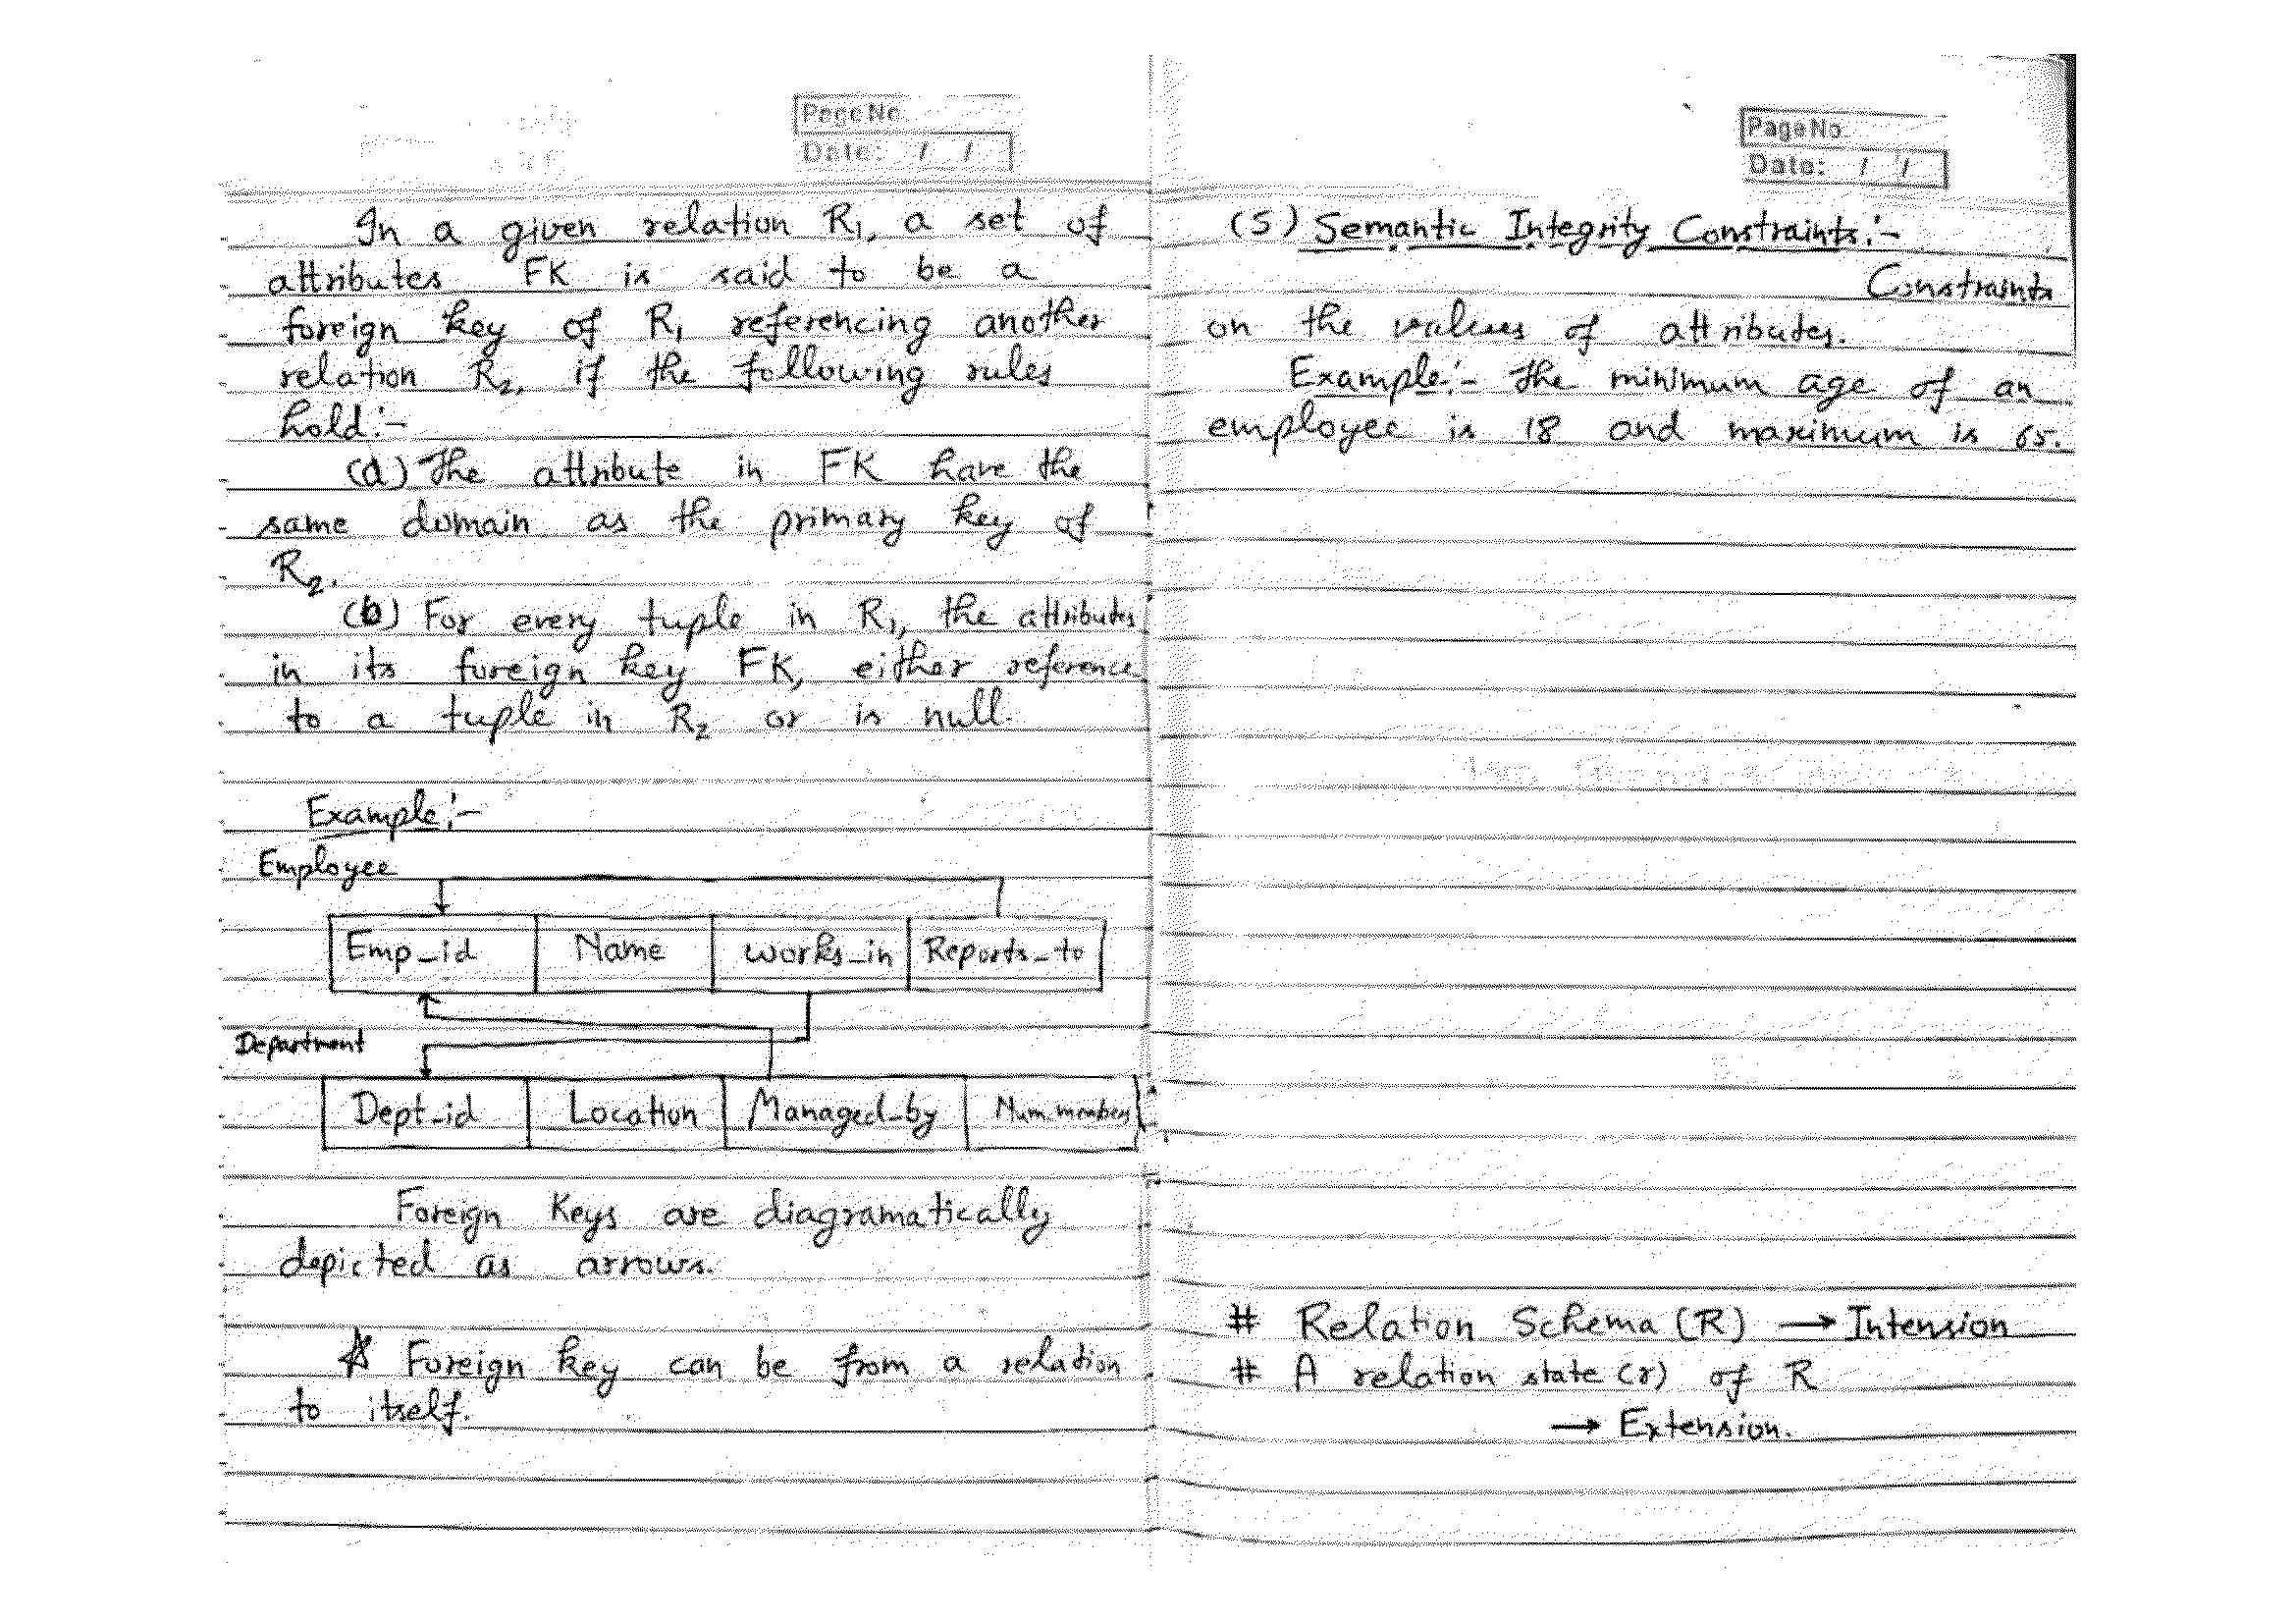 Page No.
Date: / /
In a given relation R1, a set of
attributes FK is said to be a
foreign key of R1 referencing another
relation R2, if the following rules
hold:-
(a) The attribute in FK have the
same domain as the primary key of
R2.
(b) For every tuple in R1, the attributes
in its foreign key FK, either reference
to a tuple in R2 or is null.
Example:-
Employee
Emp_id Name works_in Reports_to
Department
Dept_id Location Managed_by Num_members
Foreign Keys are diagramatically
depicted as arrows.
☆ Foreign key can be from a relation
to itself.
Page No.
Date: / /
(5) Semantic Integrity Constraints:-
Constraints
on the values of attributes.
Example:- The minimum age of an
employee is 18 and maximum is 65.
# Relation Schema (R) → Intension
# A relation state (r) of R
→ Extension.